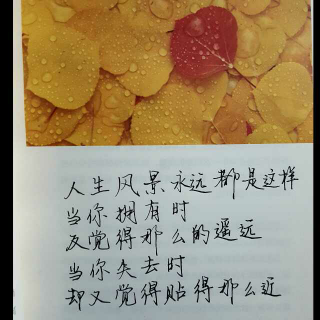 人生风景永远都是这样
当你拥有时
反觉得那么的遥远
当你失去时
却又觉得贴得那么近